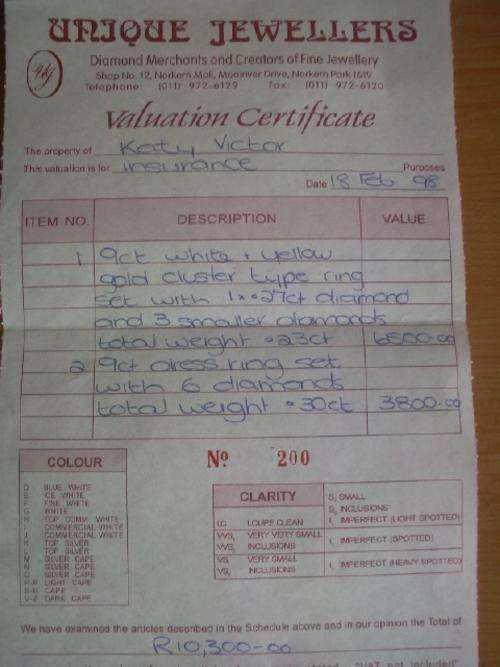 UNIQUE JEWELLERS
Diamond Merchants and Creators of Fine Jewellery
Shop No. 12, Norkem Mall, Mooiriver Drive, Norkem Park 1619
Telephone: (011) 972-6129 Fax: (011) 972-6120
Valuation Certificate
The property of Katy Victor
This valuation is for insurance Purposes
Date 18 Feb 98
ITEM NO. DESCRIPTION VALUE
1 9ct white + yellow
gold cluster type ring
set with 1x.27ct diamond
and 3 smaller diamonds
total weight .23ct 6500-00
2 9ct dress ring set
with 6 diamonds
total weight .30ct 3800-00
No 200
COLOUR
BLUE WHITE
ICE WHITE
FINE WHITE
G WHITE
H TOP COMM. WHITE
I COMMERCIAL WHITE
J COMMERCIAL WHITE
K TOP SILVER
TOP SILVER
M SILVER CAPE
N SILVER CAPE
O SILVER CAPE
LIGHT CAPE
CAPE
V-Z DARK CAPE
CLARITY
LC LOUPE CLEAN
VVS1 VERY VERY SMALL
VVS2 INCLUSIONS
VS1 VERY SMALL
VS2 INCLUSIONS
S1 SMALL
S2 INCLUSIONS
I1 IMPERFECT (LIGHT SPOTTED)
IMPERFECT (SPOTTED)
IMPERFECT (HEAVY SPOTTED)
We have examined the articles described in the Schedule above and in our opinion the Total of
R10,300-00
"VAT not included"